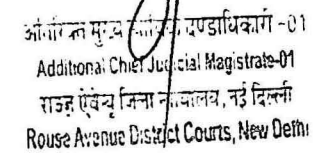 मुख्य दण्डाधिकारी -01
Additional Chief Judicial Magistrate-01
राउज़ ऐवेन्यू जिला न्यायालय, नई दिल्ली
Rouse Avenue District Courts, New Delhi